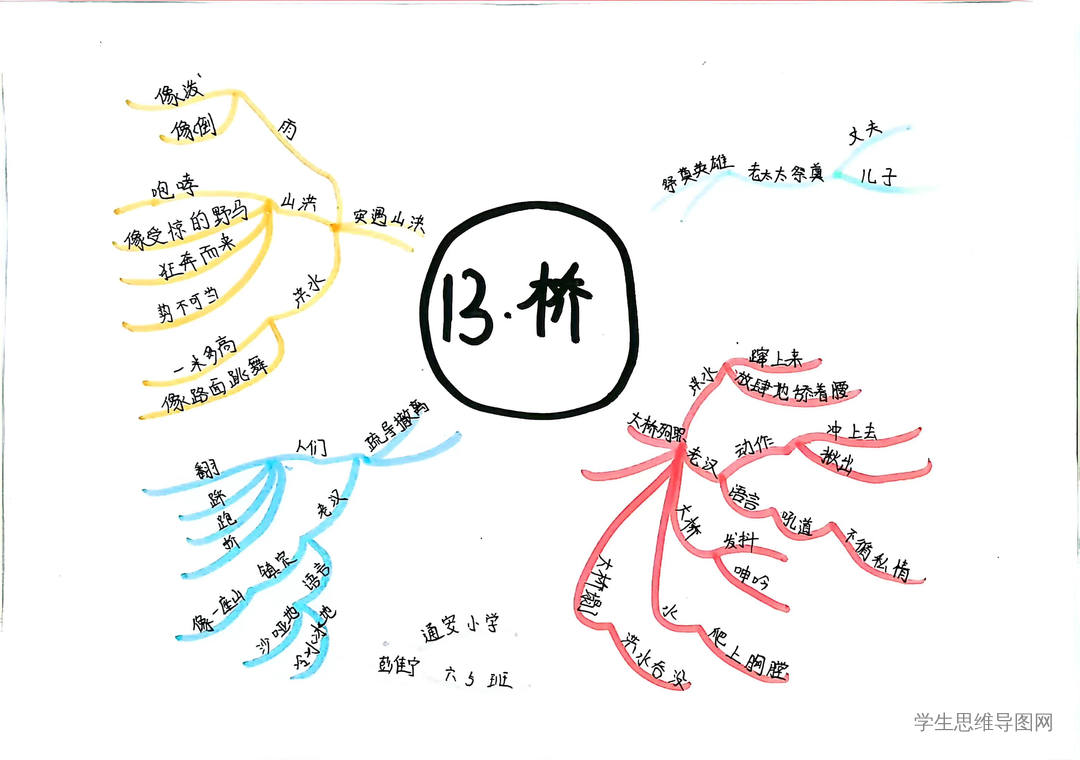 13.桥
突遇山洪
雨
像泼
像倒
山洪
咆哮
像受惊的野马
狂奔而来
势不可当
洪水
一米多高
像路面跳舞
疏导撤离
人们
翻
踩
跑
挤
老汉
镇定
像一座山
语言
沙哑地
冷冰冰地
大桥殉职
洪水
蹿上来
放肆地舔着腰
老汉
动作
冲上去
揪出
语言
吼道
不徇私情
大桥
发抖
呻吟
水
爬上胸膛
大桥塌
洪水吞没
祭奠英雄
老太太祭奠
丈夫
儿子
通安小学
彭佳宁 六5班
学生思维导图网